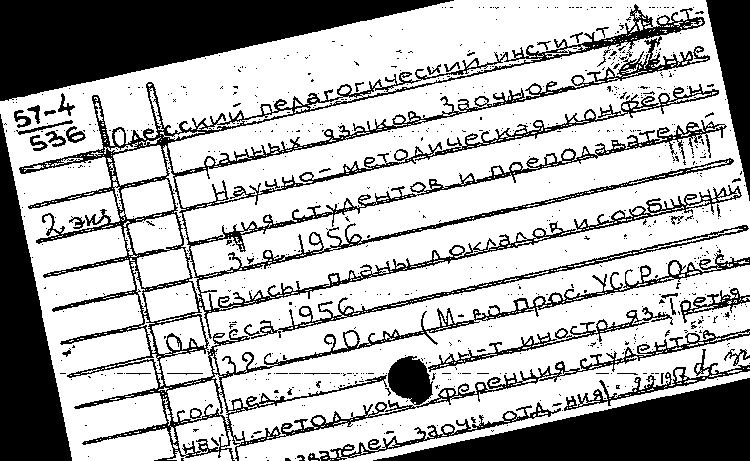 57-4
536
Одесский педагогический институт иност-
ранных языков. Заочное отделение
Научно-методическая конферен-
2 экз
ция студентов и преподавателей,
3-я. 1956.
Тезисы, планы докладов и сообщений
Одесса, 1956.
32 с. 20 см (М-во прос. УССР. Одес.
гос. пед. ин-т иностр. яз. Третья
науч.-метод. конференция студентов
заочн. отд-ния).